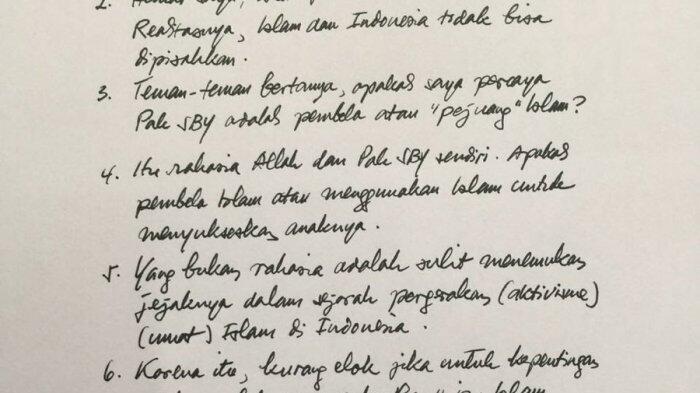 Realitasnya, Islam dan Indonesia tidak bisa
dipisahkan.
3. Teman-teman bertanya, apakah saya percaya
Pak SBY adalah pembela atau "pejuang" Islam?
4. Itu rahasia Allah dan Pak SBY sendiri. Apakah
pembela Islam atau menggunakan Islam untuk
menyukseskan anaknya.
5. Yang bukan rahasia adalah sulit menemukan
jejaknya dalam sejarah pergerakan (aktivisme)
(umat) Islam di Indonesia.
6. Karena itu, kurang elok jika untuk kepentingan